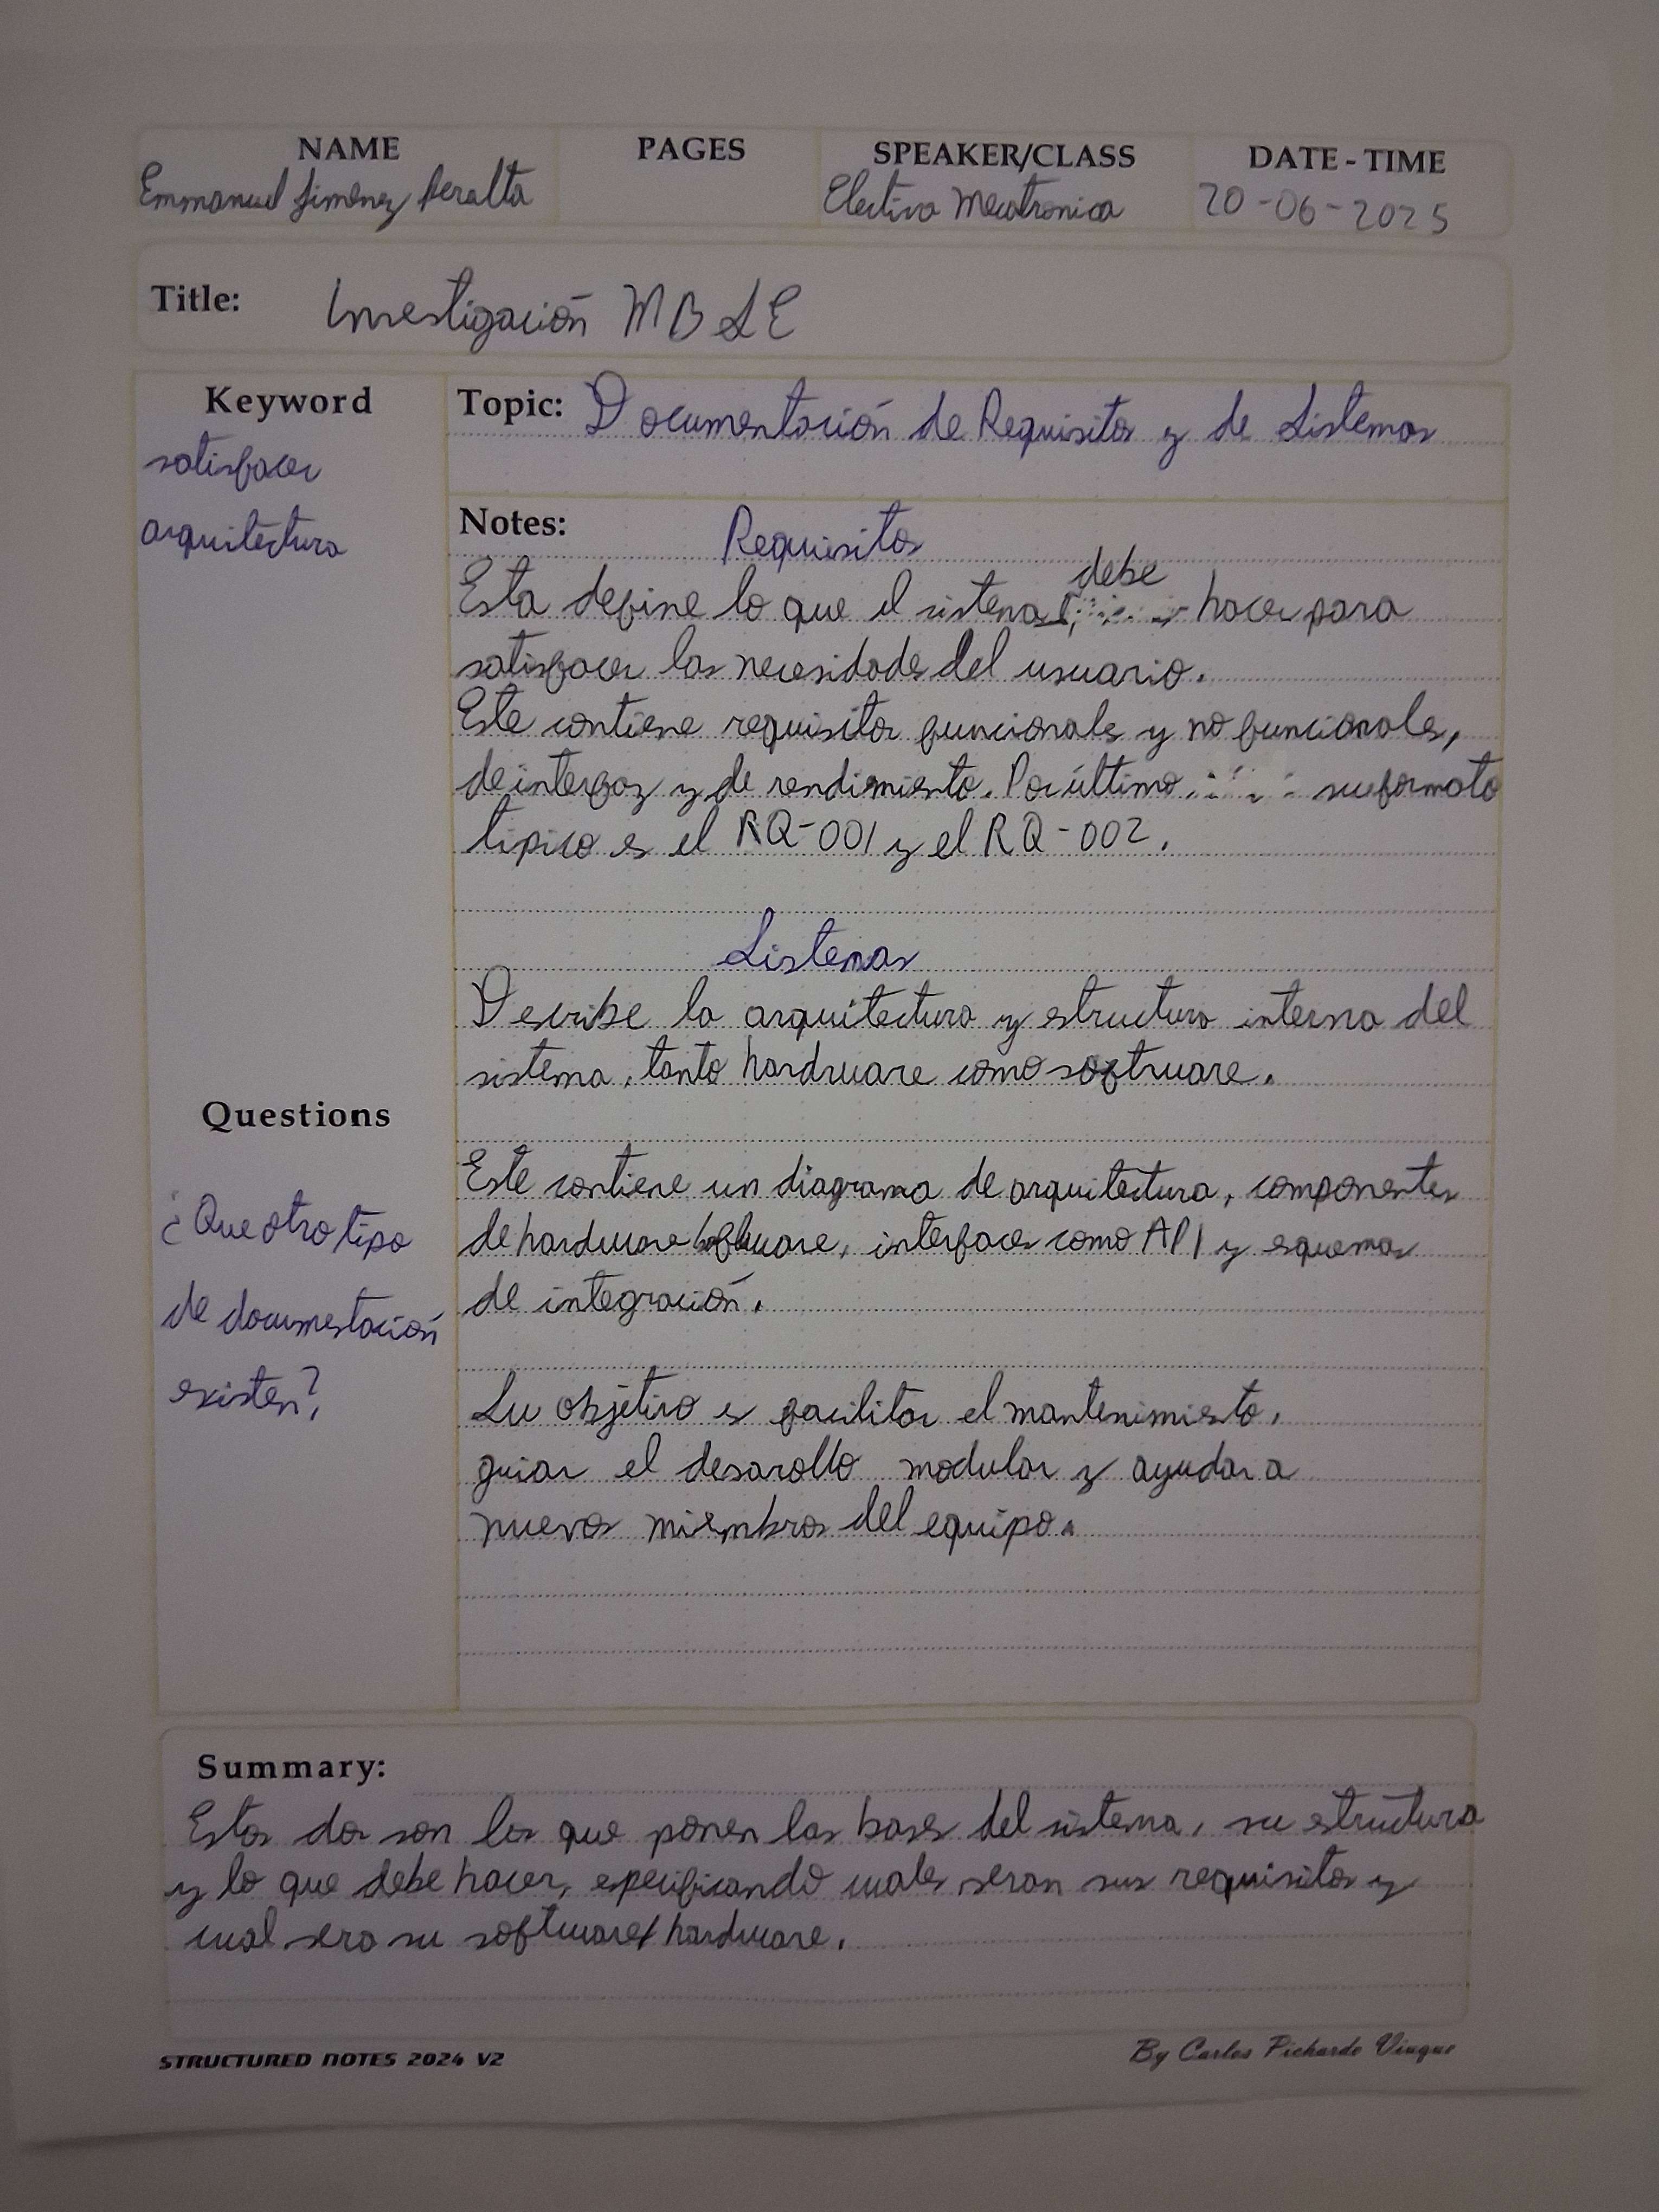 NAME
PAGES
SPEAKER/CLASS
DATE - TIME
Emmanuel Jiménez Peralta
Electiva Mecatronica
20-06-2025
Title: Investigación MBSE
Keyword
satisfacer
arquitectura
Topic: Documentación de Requisitos y de Sistemas
Notes:
Requisitos
debe
Esta define lo que el sistema hacer para
satisfacer las necesidades del usuario.
Este contiene requisitos funcionales y no funcionales,
de interfaz y de rendimiento. Por último, su formato
tipico es el RQ-001 y el RQ-002.
Sistemas
Describe la arquitectura y estructura interna del
sistema, tanto hardware como software.
Este contiene un diagrama de arquitectura, componentes
de hardware/software, interfaces como API y esquemas
de integración.
Su objetivo es facilitar el mantenimiento,
guiar el desarollo modular y ayudar a
nuevos miembros del equipo.
Questions
¿Que otro tipo
de documentación
existen?
Summary:
Estos dos son los que ponen las bases del sistema, su estructura
y lo que debe hacer, especificando cuales seran sus requisitos y
cual sera su software/hardware.
STRUCTURED NOTES 2024 V2
By Carlos Pichardo Viuque